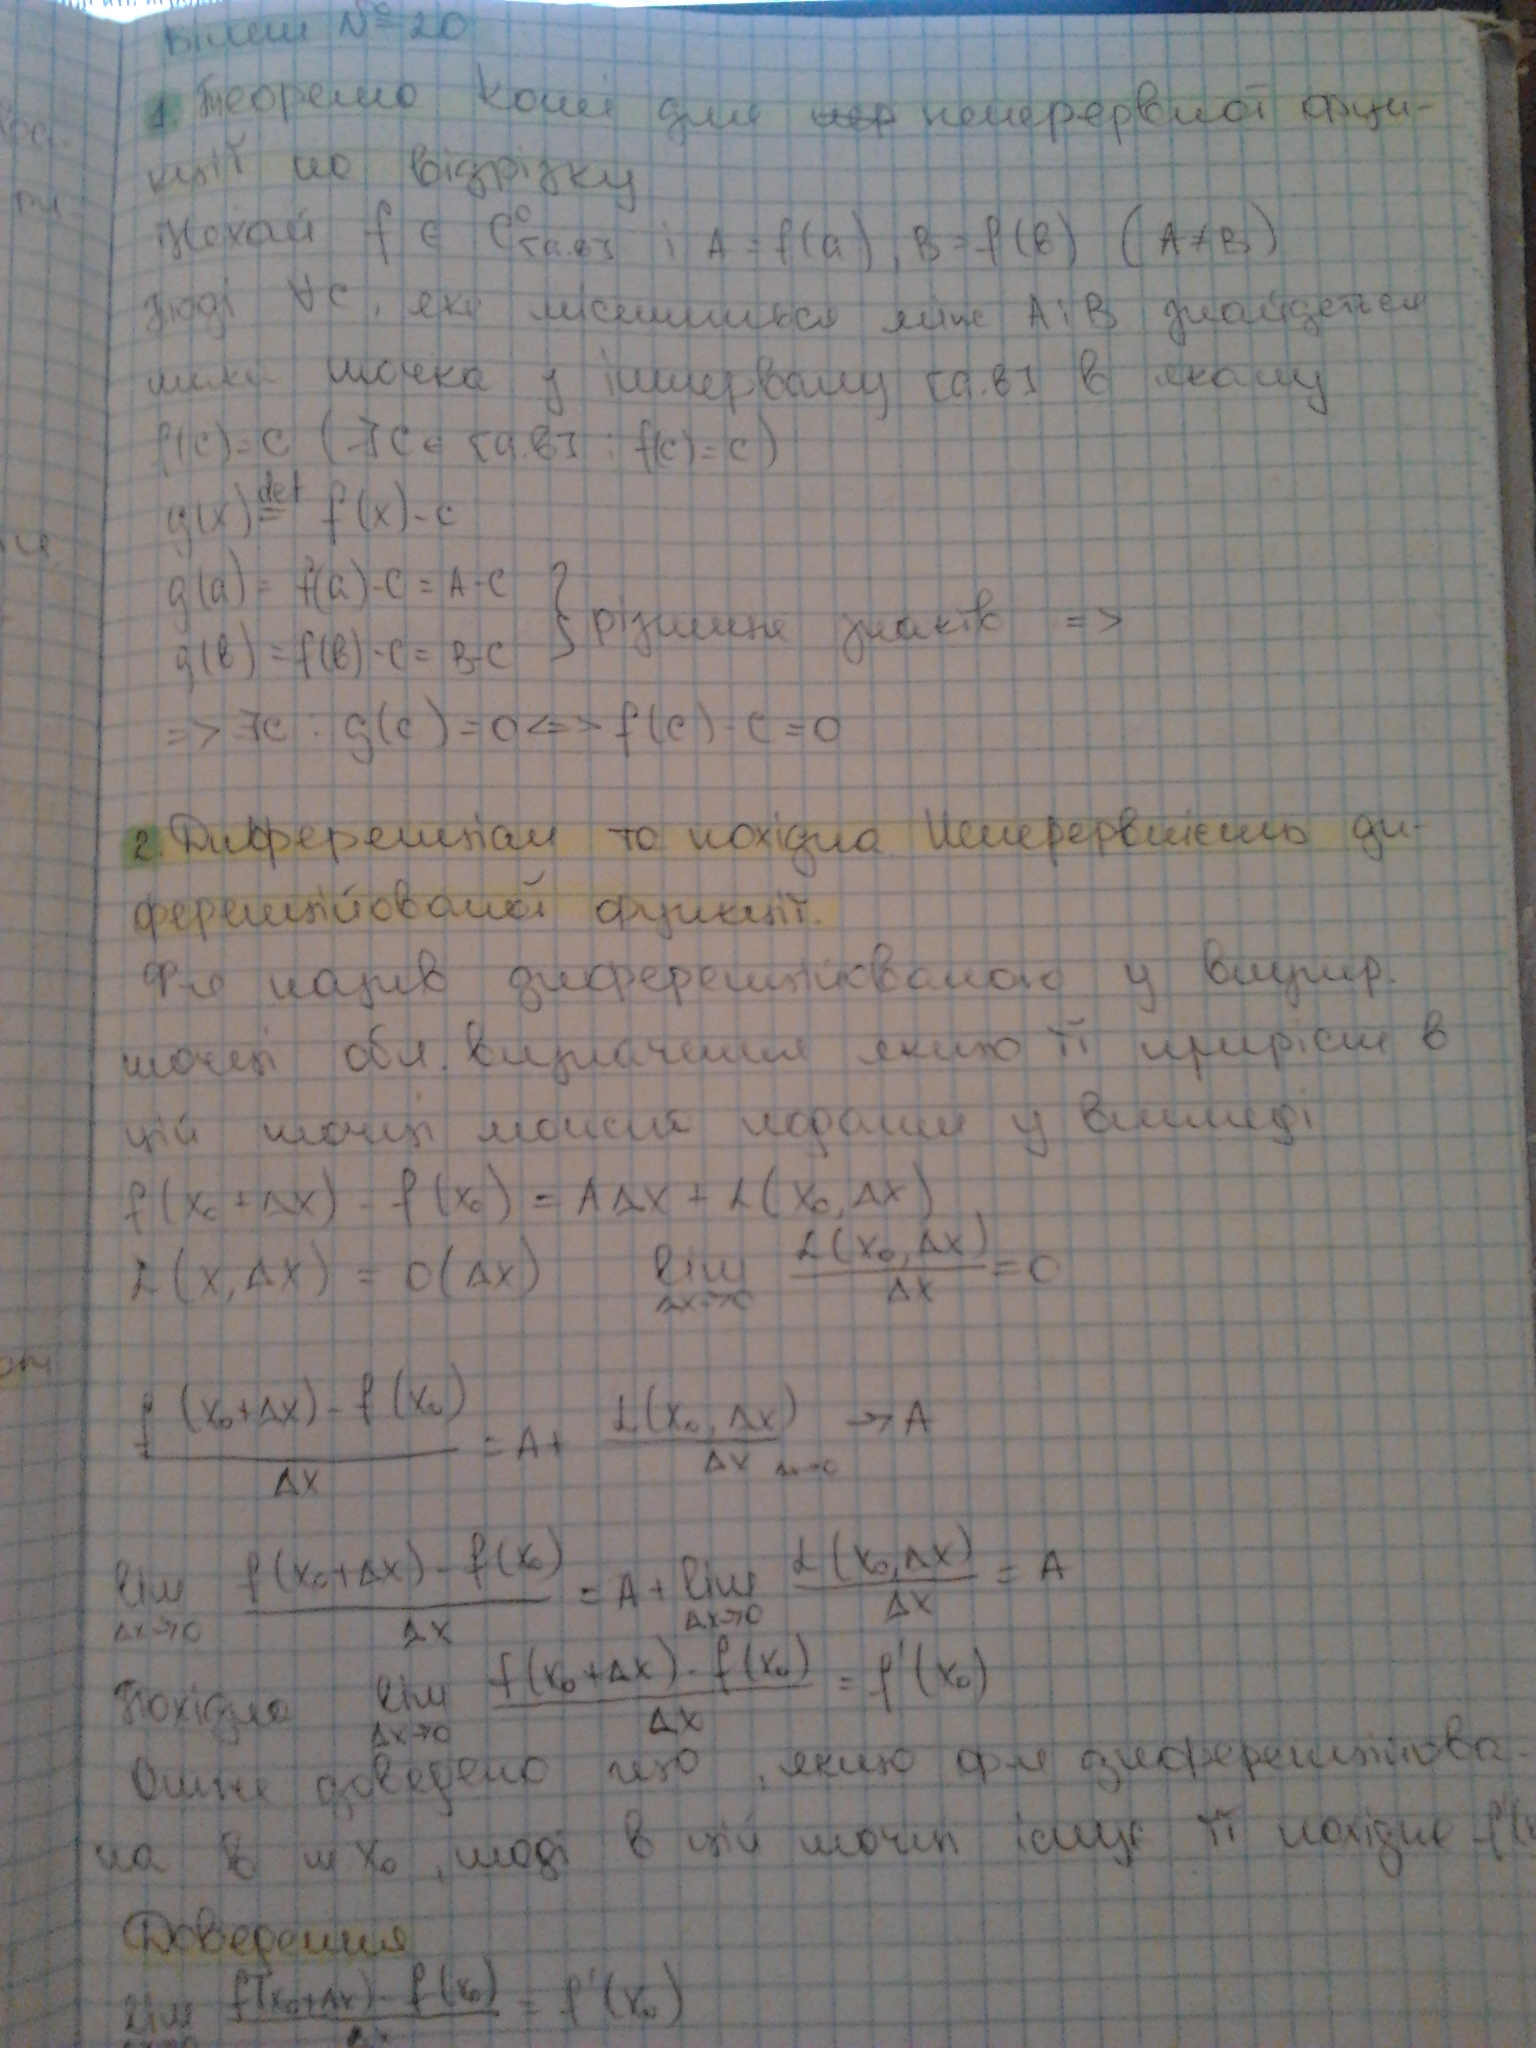 Білет №20
1. Теорема Коші для непер неперервної фун-
кції на відрізку
Нехай f ∈ C⁰[a.в] і A = f(a), B = f(в) (A≠B)
Тоді ∀C, яке міститься між A і B знайдеться
така точка у інтервалу [a.в] в якому
f(c)=C (∃c∈[a.в] : f(c)=C)
g(x) def= f(x)-C
g(a) = f(a)-C = A-C
g(в) = f(в)-C = B-C } різних знаків =>
=> ∃c : g(c)=0 <=> f(c)-C=0
2. Диференціал та похідна. Неперервність ди-
ференційованої функції.
Ф-я назив диференційованою у внутр.
точці обл. визначення якщо її приріст в
цій точці можна подати у вигляді
f(x₀+Δx) - f(x₀) = AΔx + α(x₀,Δx)
α(x,Δx) = o(Δx) lim Δx→0 α(x₀,Δx)/Δx = 0
(f(x₀+Δx) - f(x₀))/Δx = A + α(x₀,Δx)/Δx → A Δx→0
lim Δx→0 (f(x₀+Δx) - f(x₀))/Δx = A + lim Δx→0 α(x₀,Δx)/Δx = A
Похідна lim Δx→0 (f(x₀+Δx) - f(x₀))/Δx = f'(x₀)
Отже доведено що, якщо ф-я диференційова-
на в т x₀, тоді в цій точці існує її похідна
Доведення
lim (f(x₀+Δx) - f(x₀))/Δx = f'(x₀)